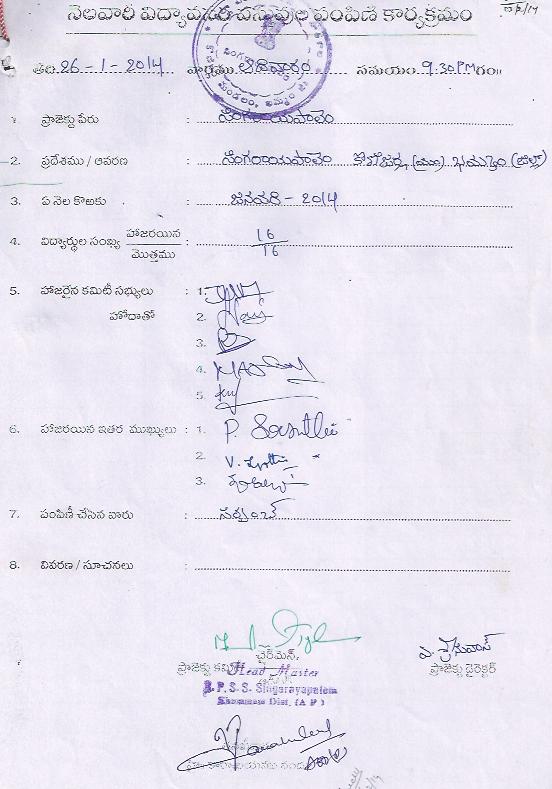 నెలవారి విద్యావనరు వస్తువుల పంపిణీ కార్యక్రమం
తేది 26-1-2014 వారము ఆదివారం సమయం 9:30 PM గం॥
1. ప్రాజెక్టు పేరు : సింగరాయపాలెం
2. ప్రదేశము / ఆవరణ : సింగరాయపాలెం కొణిజర్ల (మం) ఖమ్మం (జిల్లా)
3. ఏ నెల కొఱకు : జనవరి - 2014
4. విద్యార్థుల సంఖ్య హాజరయిన / మొత్తము : 16 / 16
5. హాజరైన కమిటీ సభ్యులు : 1.
హోదాతో 2.
3.
4.
5.
6. హాజరయిన ఇతర ముఖ్యులు : 1. P.
2. V.
3.
7. పంపిణీ చేసిన వారు : సర్పంచ్
8. వివరణ / సూచనలు :
ఛైర్మెన్,
ప్రాజెక్టు కమిటీ
Head Master
S. P. S. S. Singarayapalem
Khammam Dist, (A P)
ఎ. శ్రీనివాస్
ప్రాజెక్టు డైరెక్టర్